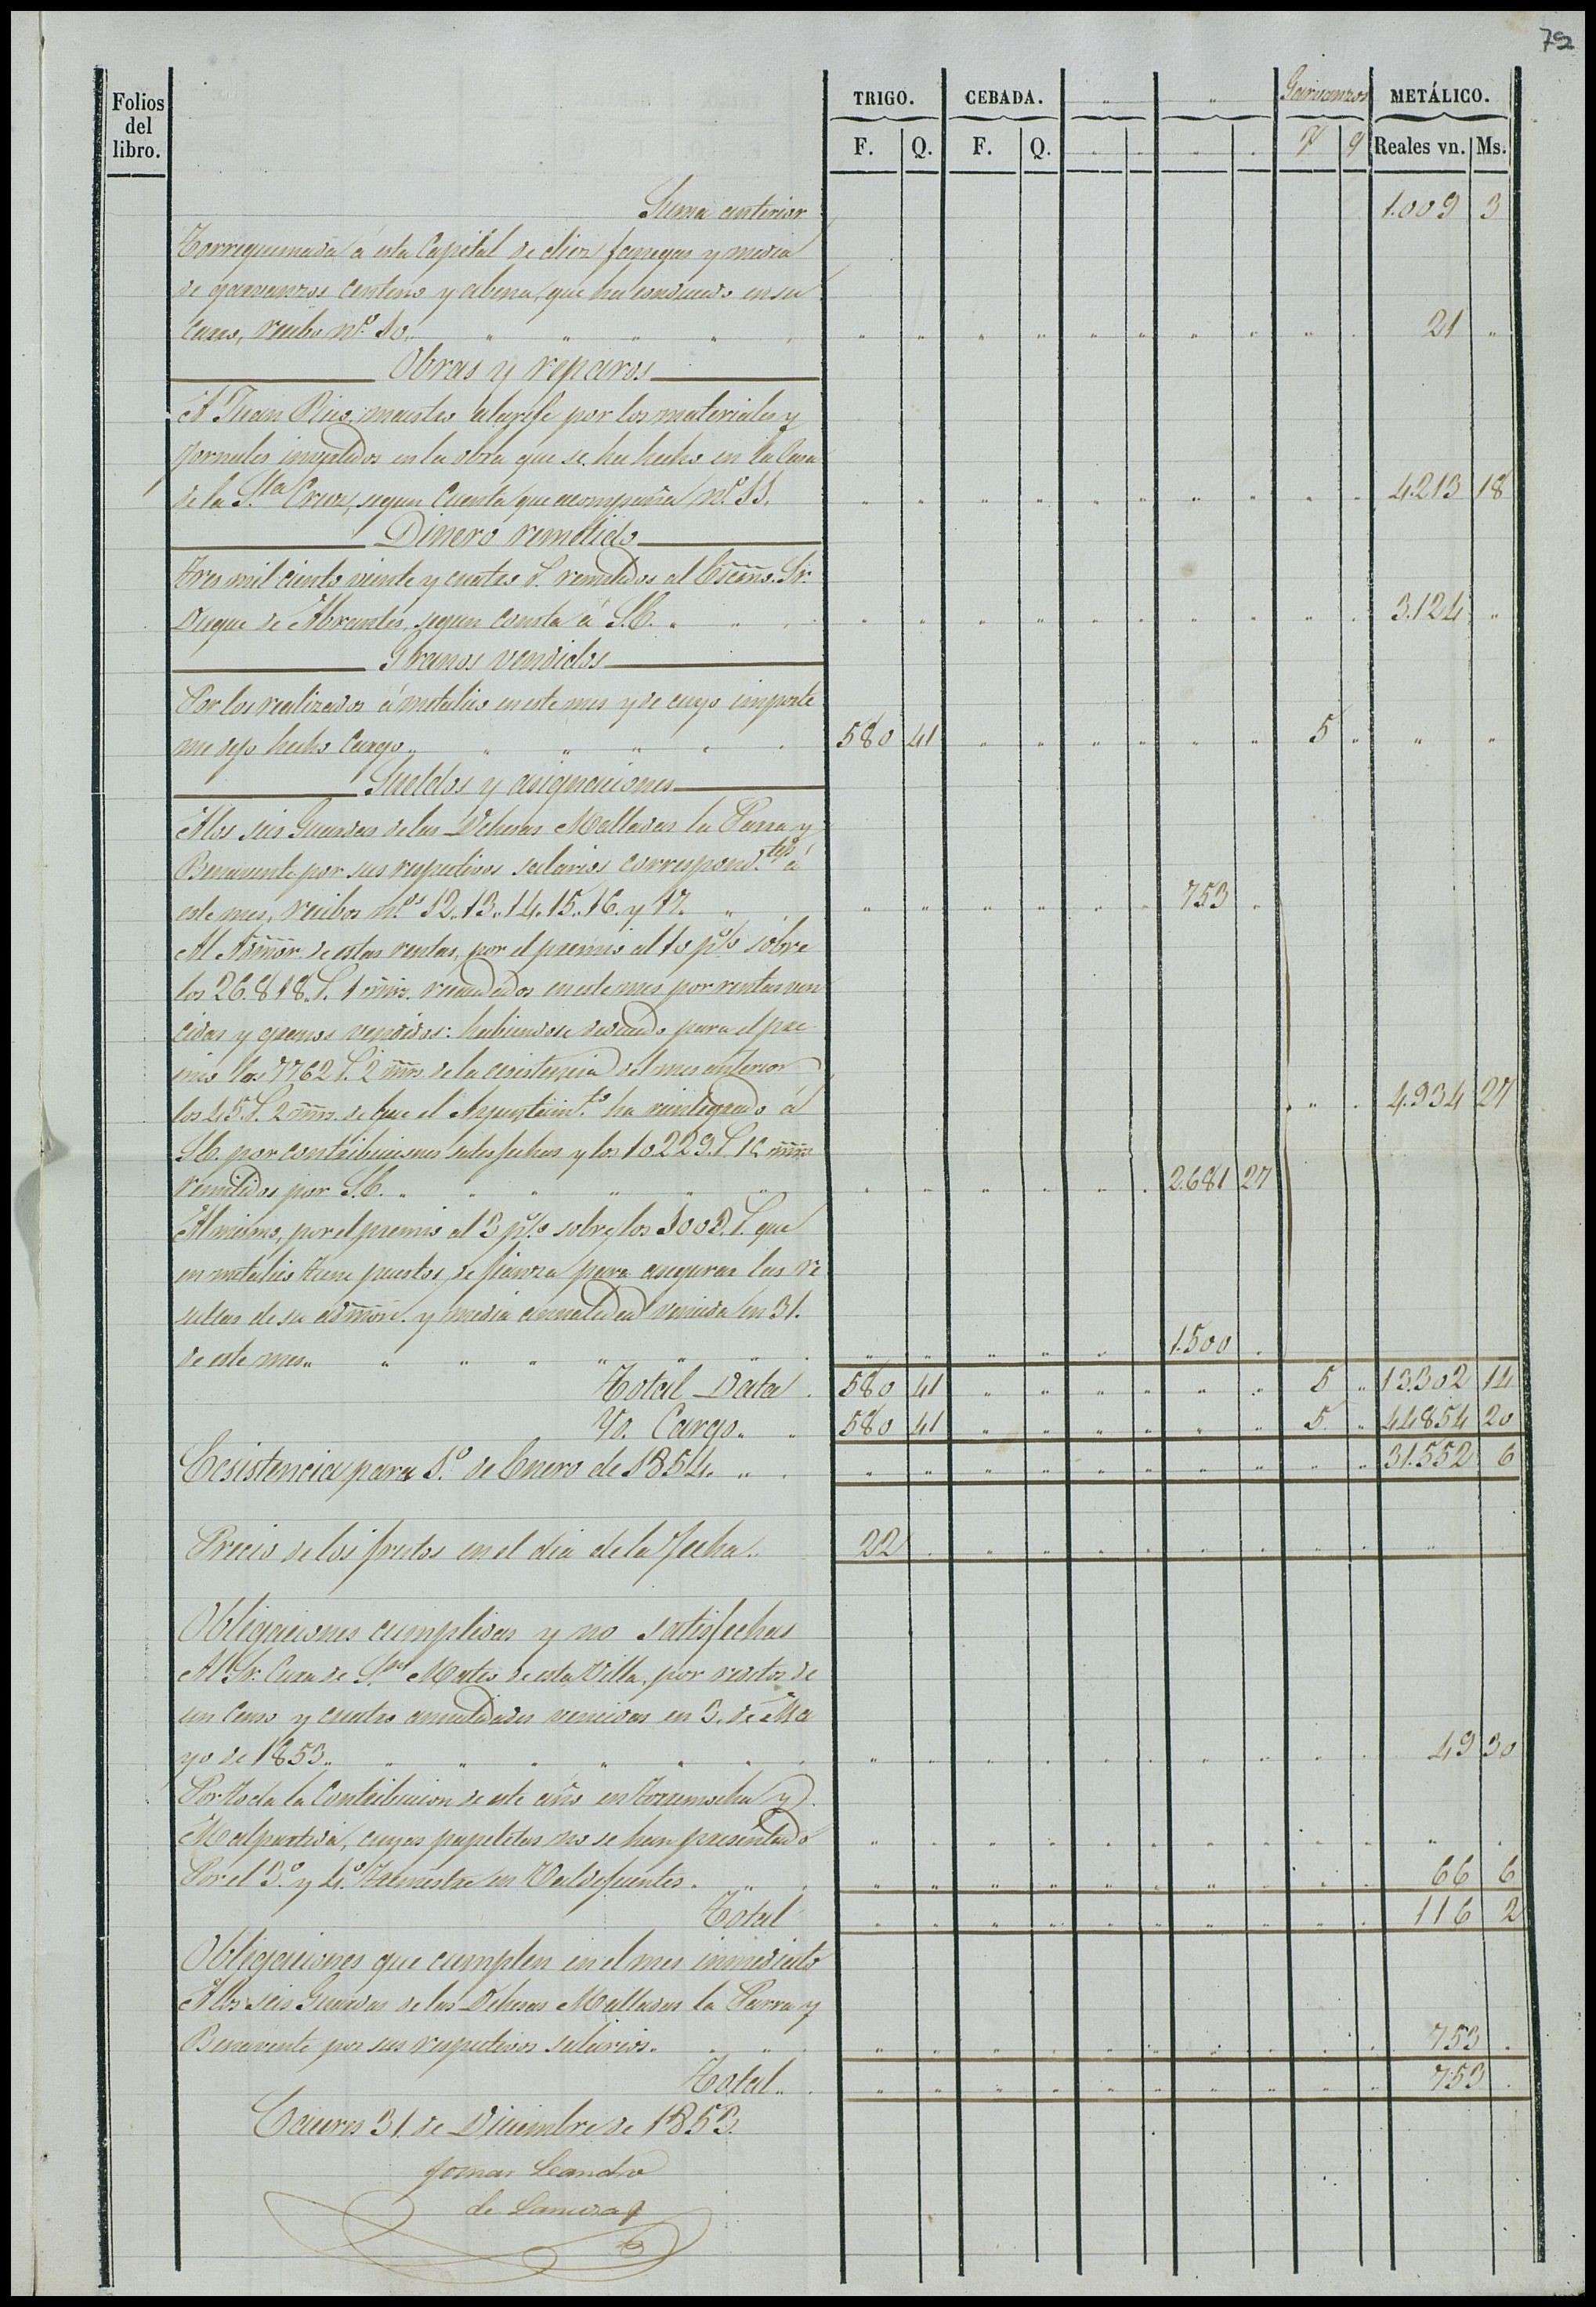 72
Folios del libro. TRIGO. CEBADA. " " Garvanzos METÁLICO.
F. Q. F. Q. " " " " F. Q. Reales vn. Ms.
Suma anterior 1.009 3
Torrequemada á esta Capital de diez fanegas y media
de garvanzos centeno y abena, que ha conducido en su
carro, recibo nº. 10. " " " " " " " " " " " " " " 21 "
Obras y reparos
A Juan Rino, maestro alarife por los materiales y
jornales invertidos en la obra que se ha hecho en la Casa
de la Sta. Cruz, segun Cuenta que acompaña nº. 11. " " " " " " " " " " 4.213 18
Dinero remitido
Tres mil ciento veinte y cuatro r. remitidos al Escmo. Sr.
Duque de Abrantes, segun consta á S.E. " " " " " " " " " " " " 3.124 "
Granos vendidos
Por los realizados á metalico en este mes y de cuyo importe
me dejo hecho Cargo. " " " " " 580 41 " " " " " " 5 " " "
Sueldos y asignaciones
A los seis Guardas de las Dehesas Malladas la Parra y
Benavente por sus respectivos salarios correspondtes. á
este mes, recibos nos. 12. 13. 14. 15. 16. y 17. " " " " " " " 753 "
Al Admor. de estas rentas, por el premio al 10 p% sobre
los 26.818 r. 1 mrs. recaudados en este mes por rentas ven
cidas y granos vendidos: habiendose deducido para el pre
mio los 7762 r. 2 mrs. de la ecsistencia del mes anterior
los 45 r. 2 mrs. de que el Ayuntamto. ha reintegrado á 4.934 27
S.E. por contribuciones satisfechas y los 10.229 r. 16 mrs.
remitidos por S.E. " " " " " " " " " " " 2.681 27
Al mismo, por el premio al 3 p% sobre los r. que
en metalico tiene puestos de fianza para asegurar las re
sultas de su admon. y media anualidad vencida en 31.
de este mes " " " " " " " " " " " " 1.500 "
Total Data. 580 41 " " " " " " 5 " 13.302 14
Yd. Cargo. " 580 41 " " " " " " 5. " 44.854 20
Ecsistencia para 1º. de Enero de 1854. " " " " " " " " " " " " 31.552 6
Precio de los frutos en el dia de la fecha. 22 " " " " " " " " " " "
Obligaciones cumplidas y no satisfechas
Al Sr. Cura de Sn. Mateo de esta Villa, por reditos de
un Censo y cuatro anualidades vencidas en 3. de Ma
yo de 1853. " " " " " " " " " " " " " " " " 49 30
Por toda la Contribucion de este año en Torremocha y
Malpartida, cuyas papeletas no se han presentado " " " " " " " " " " " "
Por el 3º. y 4º. Trimestre en Valdefuentes. " " " " " " " " " " " " 66 6
Total " " " " " " " " " " 116 2
Obligaciones que cumplen en el mes inmediato
A los seis Guardas de las Dehesas Malladas la Parra y
Benavente por sus respectivos salarios. " " " " " " " " " " " " 753 "
Total. " " " " " " " " " " " 753 "
Caceres 31 de Diciembre de 1853.